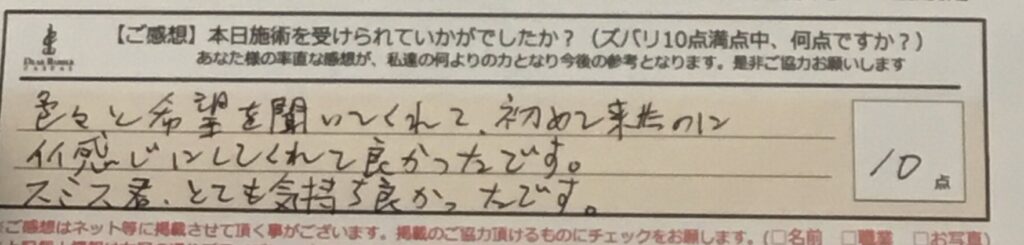 【ご感想】本日施術を受けられていかがでしたか？（ズバリ10点満点中、何点ですか？）
あなた様の率直な感想が、私達の何よりの力となり今後の参考となります。是非ご協力お願いします
色々と希望を聞いてくれて、初めて来たのに
イイ感じにしてくれて良かったです。
スミス君、とても気持ち良かったです。
10点
※ご感想はネット等に掲載させて頂く事がございます。掲載のご協力頂けるものにチェックをお願します。（□名前　□職業　□お写真）